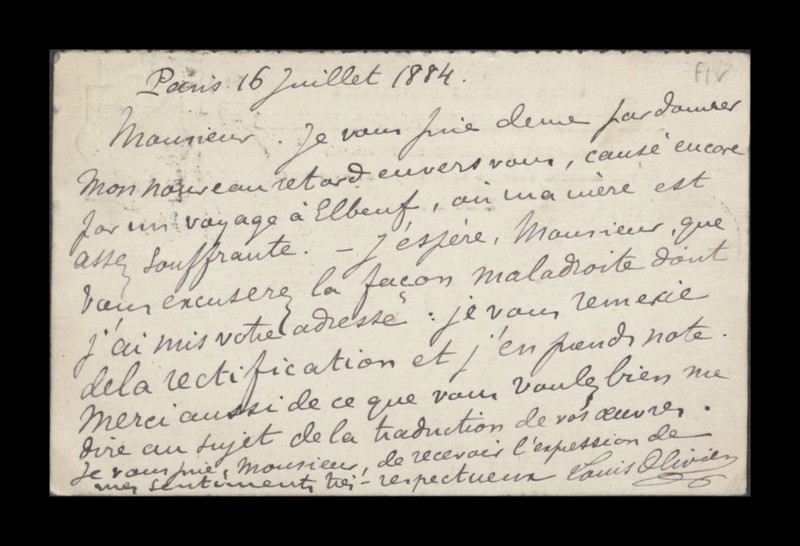 Paris 16 Juillet 1884.
FIV
Monsieur. Je vous prie de me pardonner
mon nouveau retard envers vous, causé encore
par un voyage à Elbeuf, où ma mère est
assez souffrante. — J'espère, Monsieur, que
vous excuserez la façon maladroite dont
j'ai mis votre adresse : je vous remercie
de la rectification et j'en prends note.
Merci aussi de ce que vous voulez bien me
dire au sujet de la traduction de vos œuvres.
Je vous prie, Monsieur, de recevoir l'expression de
mes sentiments très-respectueux Louis Olivier